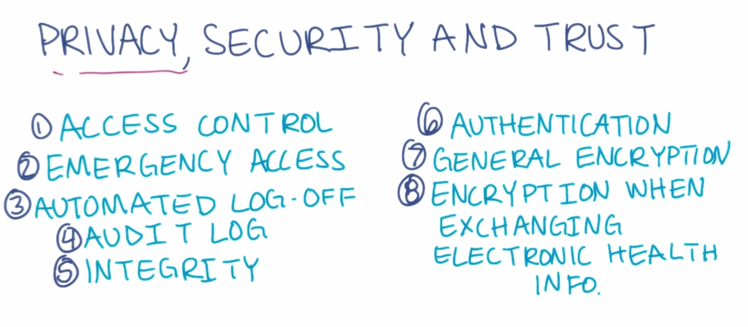 PRIVACY, SECURITY AND TRUST
① ACCESS CONTROL
② EMERGENCY ACCESS
③ AUTOMATED LOG-OFF
④ AUDIT LOG
⑤ INTEGRITY
⑥ AUTHENTICATION
⑦ GENERAL ENCRYPTION
⑧ ENCRYPTION WHEN
EXCHANGING
ELECTRONIC HEALTH
INFO.